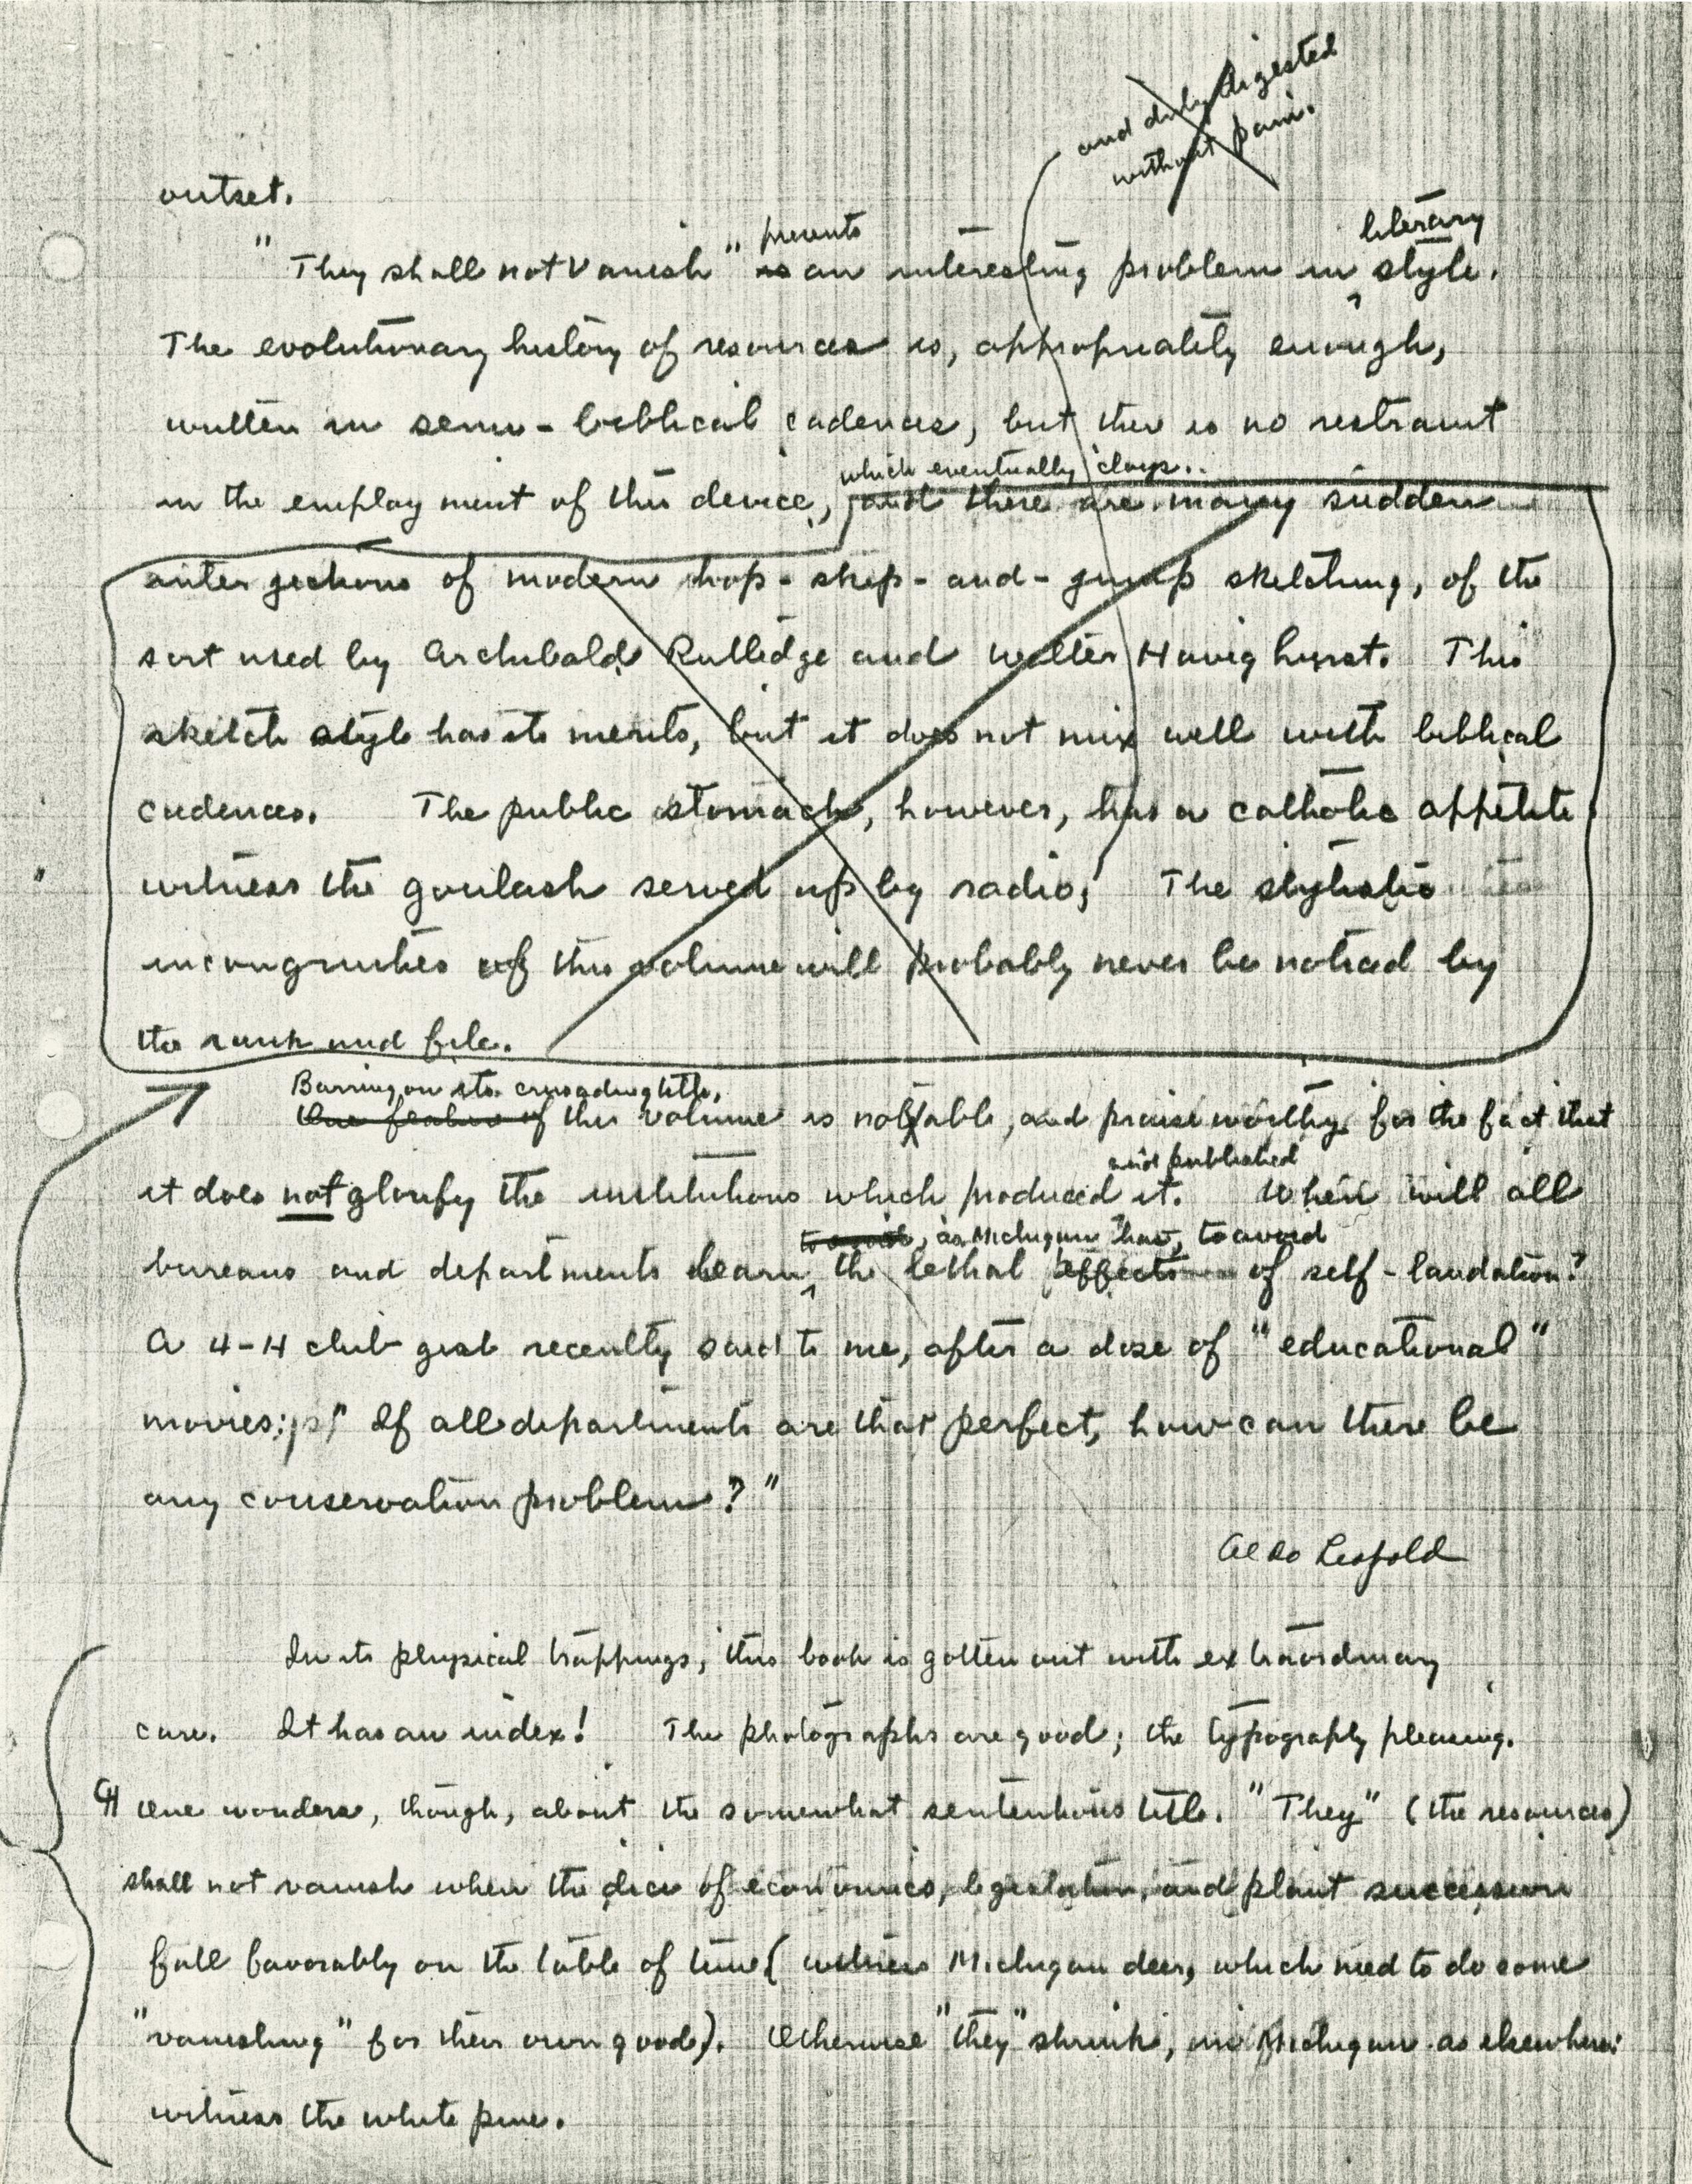 and duly digested
without pain.
outset.
presents literary
"They shall not Vanish" is an interesting problem in style.
The evolutionary history of resources is, appropriately enough,
written in semi-biblical cadences, but there is no restraint
which eventually cloys..
in the employment of this device, and there are many sudden
interjections of modern hop-skip-and-jump sketching, of the
sort used by Archibald Rutledge and Walter Havighurst. This
sketch style has its merits, but it does not mix well with biblical
cadences. The public stomach, however, has a catholic appetite
witness the goulash served up by radio; The stylistic
incongruities of this volume will probably never be noticed by
the rank and file.
Barring on its crusading title,
One feature of this volume is notable, and praiseworthy for the fact that
and published
it does not glorify the institutions which produced it. When will all
to avoid, as Michigan has, to avoid
bureaus and departments learn the lethal effects of self-laudation?
A 4-H club girl recently said to me, after a dose of "educational"
movies: " If all departments are that perfect, how can there be
any conservation problem?"
Aldo Leopold
In its physical trappings, this book is gotten out with extraordinary
care. It has an index! The photographs are good; the typography pleasing.
¶ One wonders, though, about the somewhat sententious title. "They" (the resources)
shall not vanish when the dice of economics, legislation, and plant succession
fall favorably on the table of time (witness Michigan deer, which need to do some
"vanishing" for their own good). Otherwise "they" shrink, in Michigan as elsewhere:
witness the white pine.